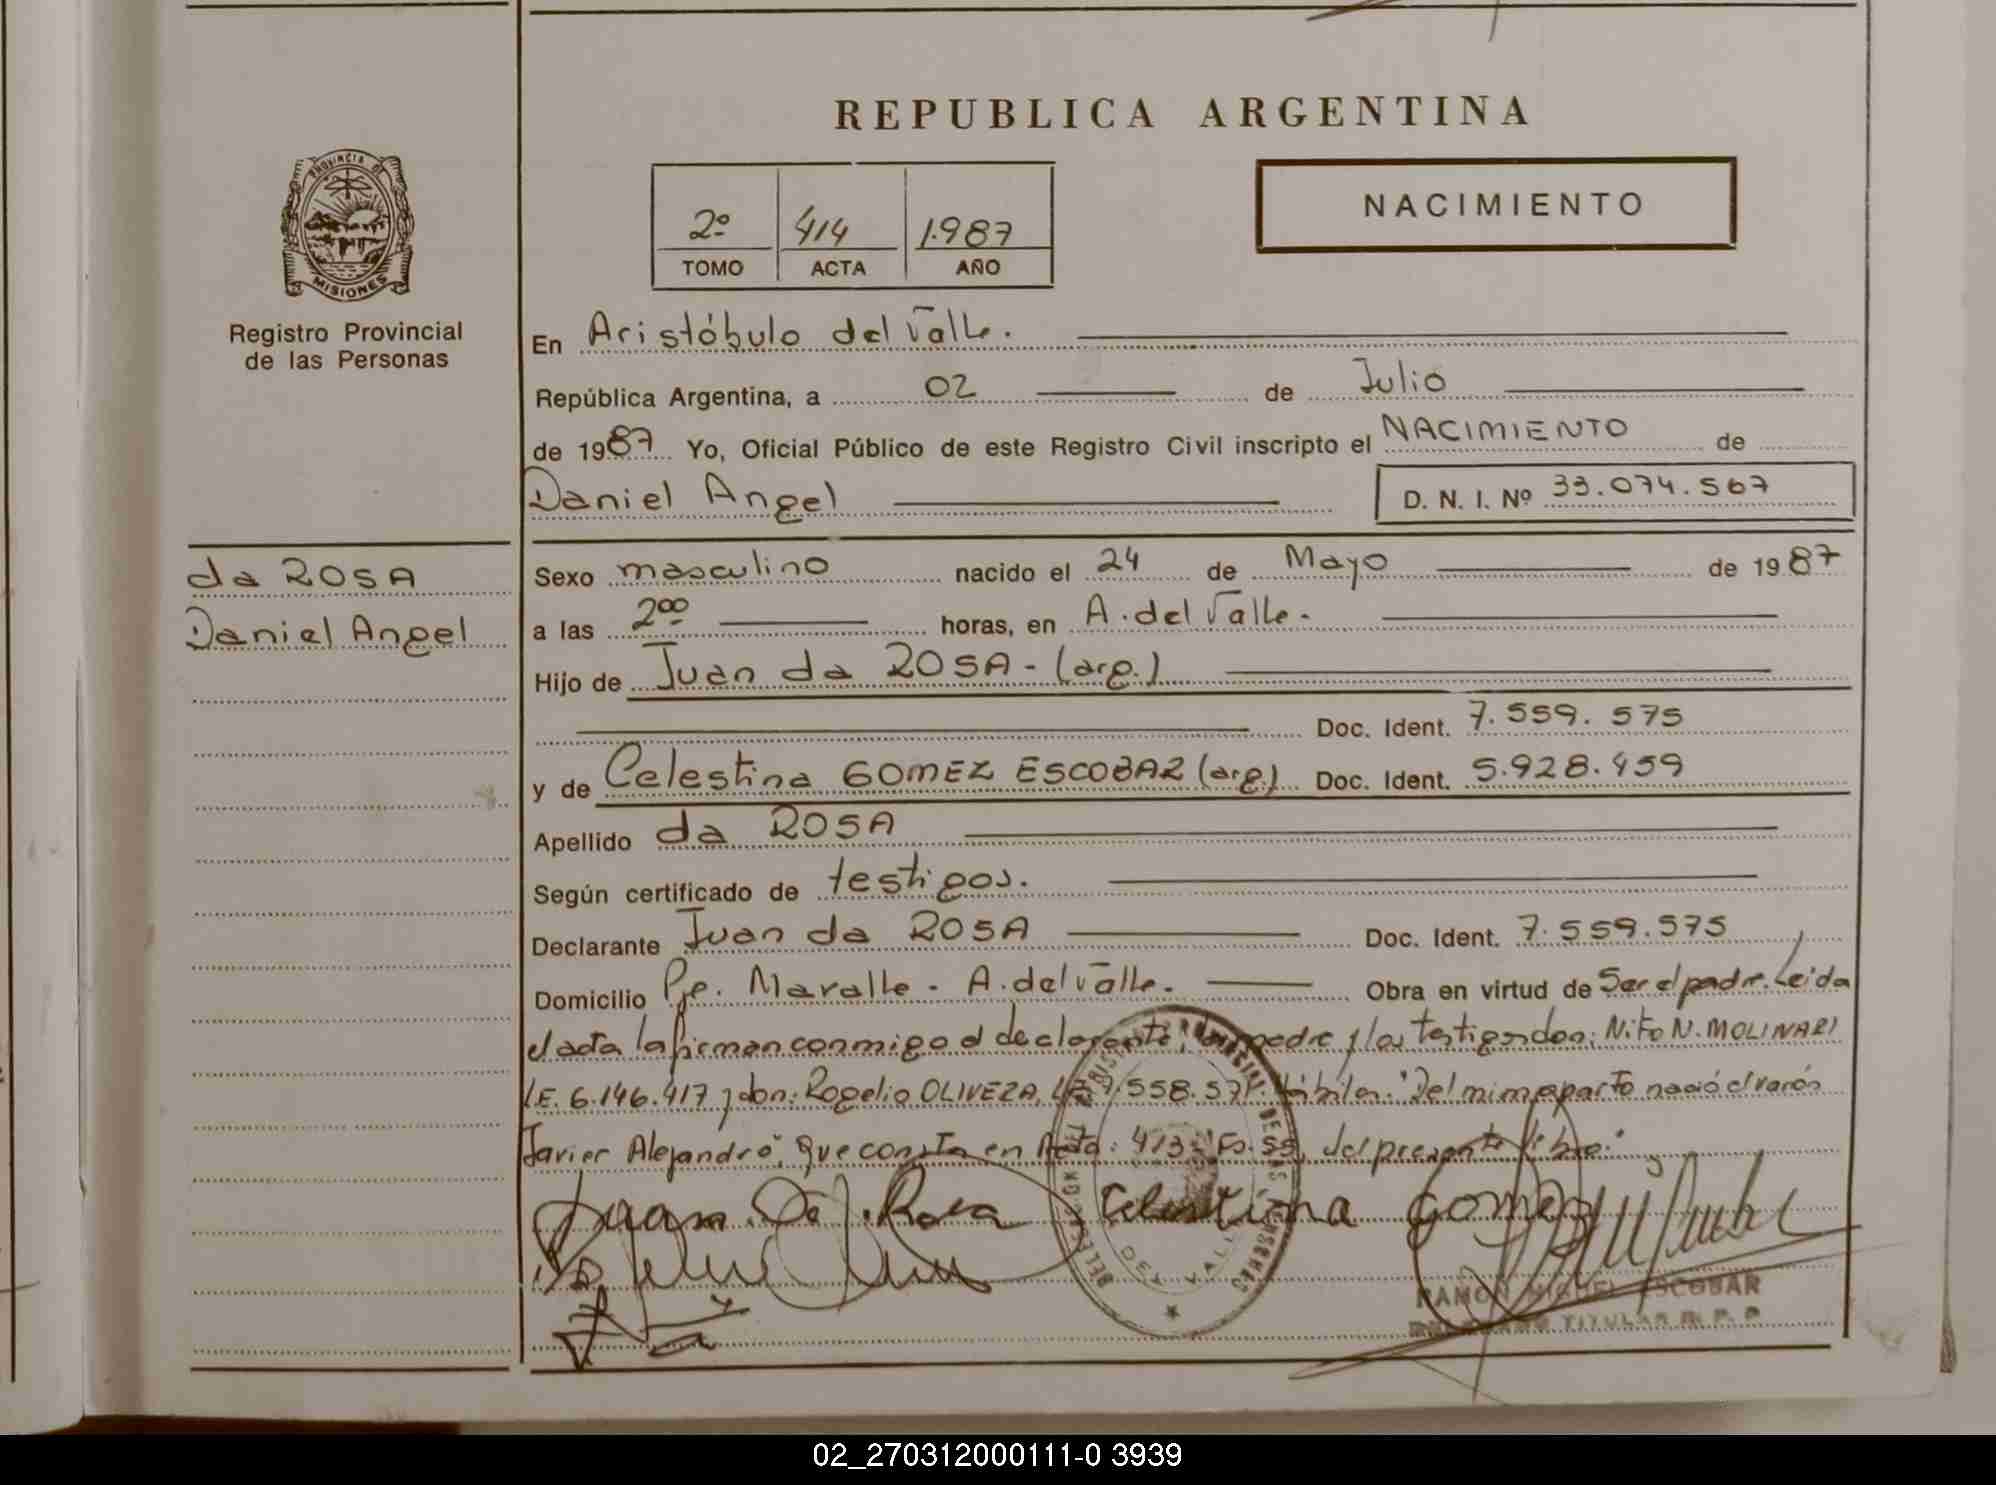 REPUBLICA ARGENTINA
NACIMIENTO
2º 414 1.987
TOMO ACTA AÑO
PROVINCIA DE
MISIONES
Registro Provincial
de las Personas
En Aristóbulo del Valle.
República Argentina, a 02 de Julio
de 1987 Yo, Oficial Público de este Registro Civil inscripto el NACIMIENTO de
Daniel Angel D. N. I. Nº 33.074.567
da ROSA
Daniel Angel
Sexo masculino nacido el 24 de Mayo de 1987
a las 2ºº horas, en A. del Valle.
Hijo de Juan da ROSA - (arg.)
Doc. Ident. 7.559.575
y de Celestina GOMEZ ESCOBAR (arg.) Doc. Ident. 5.928.459
Apellido da ROSA
Según certificado de testigos.
Declarante Juan da ROSA Doc. Ident. 7.559.575
Domicilio Pje. Maralle - A. del Valle. Obra en virtud de Ser el padre. Leida
el acta la firman conmigo el declarante, madre y los testigos don: Nito N. MOLINARI
L.E. 6.146.417 y don: Rogelio OLIVERA, 7.558.57 hábiles. "Del mismo parto nació el varón
Javier Alejandro", que consta en Acta: 413 Fo. 55, del presente libro."
Juan Da Rosa Celestina Gomez
DEL VALLE
RAMON MIGUEL ESCOBAR
DELEGADO TITULAR R. P. P.
02_270312000111-0 3939